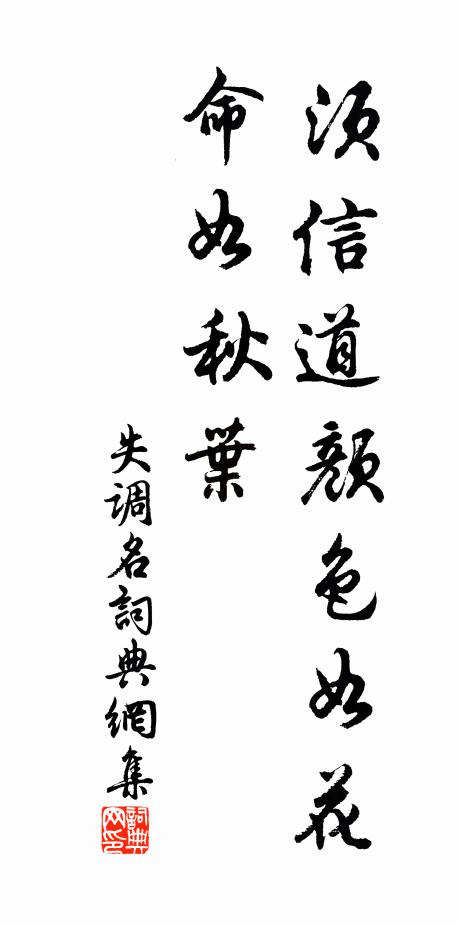 須信道顏色如花
命如秋葉
失調名詞典網集
詞典网印